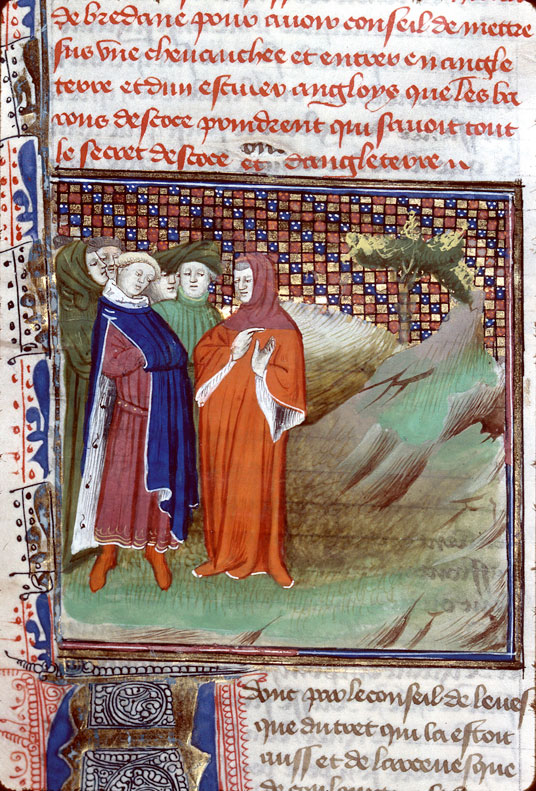 de bredane pour avoir conseil de mettre
sus une chevauchee et entrer en angle
terre et dun escuier angloys que les ba
rons descoce prindrent qui savoit tout
le secret descoce et dangleterre
on
dont par le conseil de leves
que du tret qui la estoit
aussi et de larcevesque
de